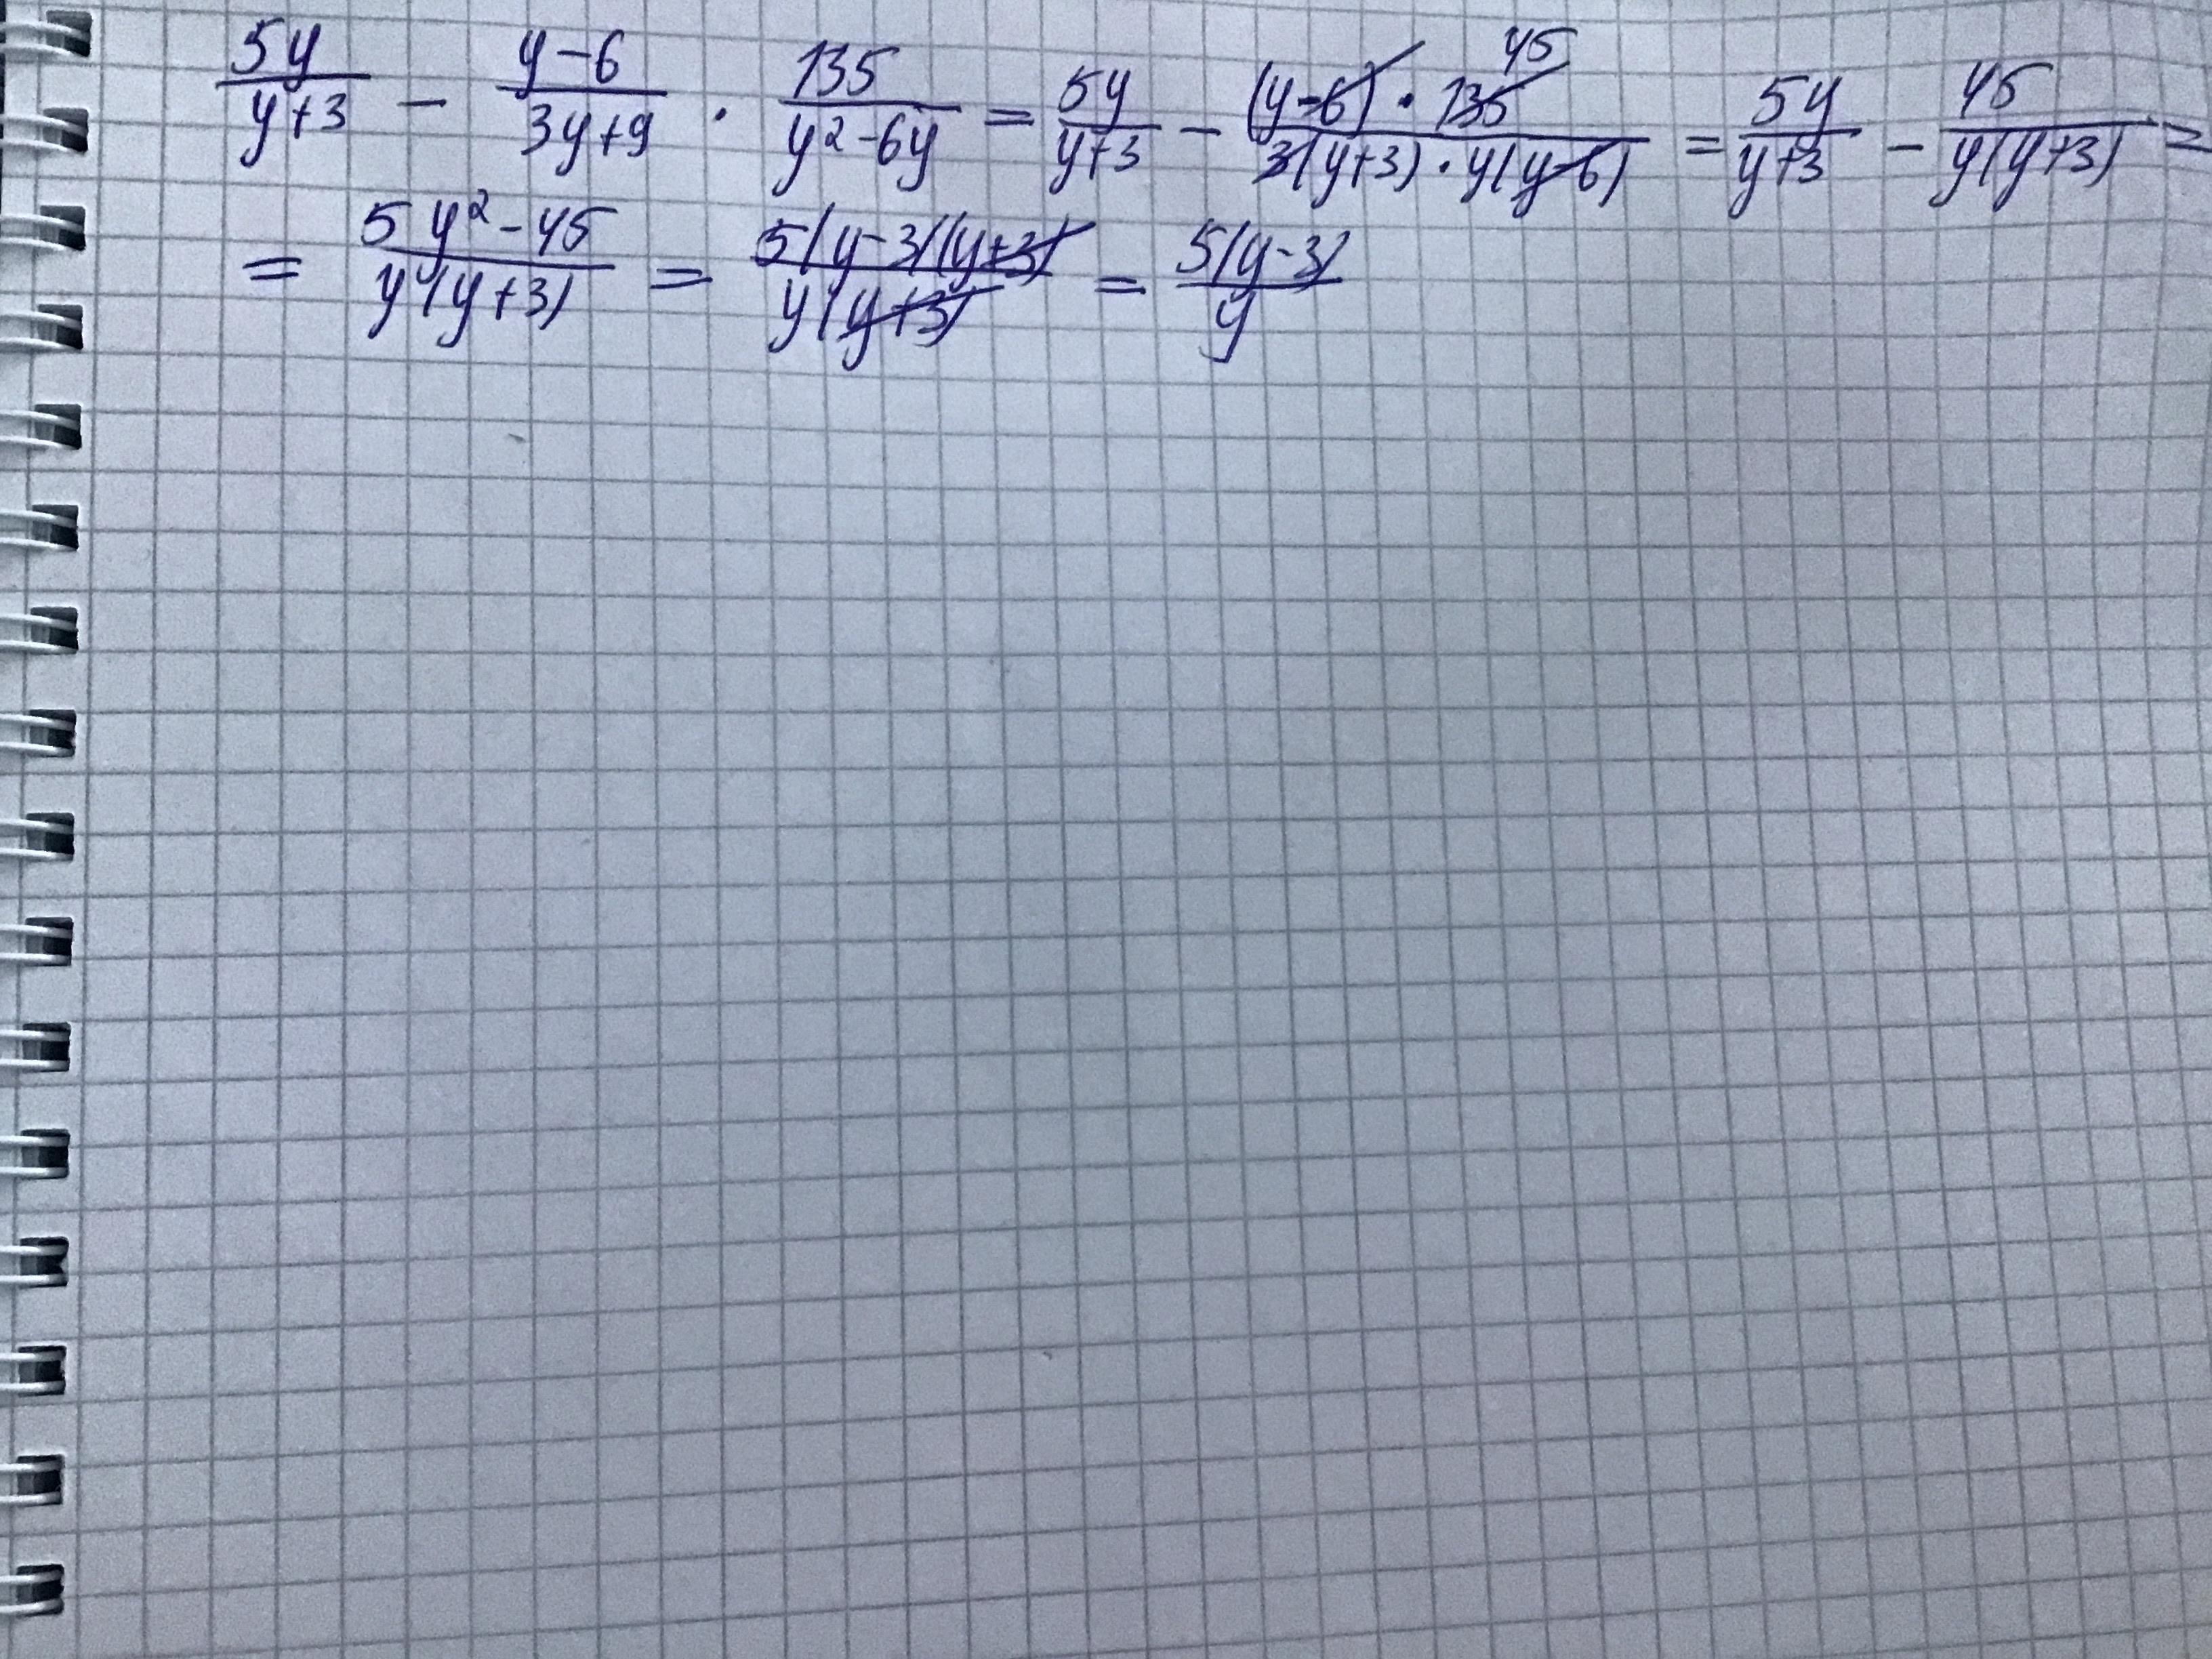 5y/(y+3) − (y−6)/(3y+9) · 135/(y²−6y) = 5y/(y+3) − ((y−6) · 135 45)/(3(y+3) · y(y−6)) = 5y/(y+3) − 45/(y(y+3)) =
= (5y²−45)/(y(y+3)) = (5(y−3)(y+3))/(y(y+3)) = (5(y−3))/y